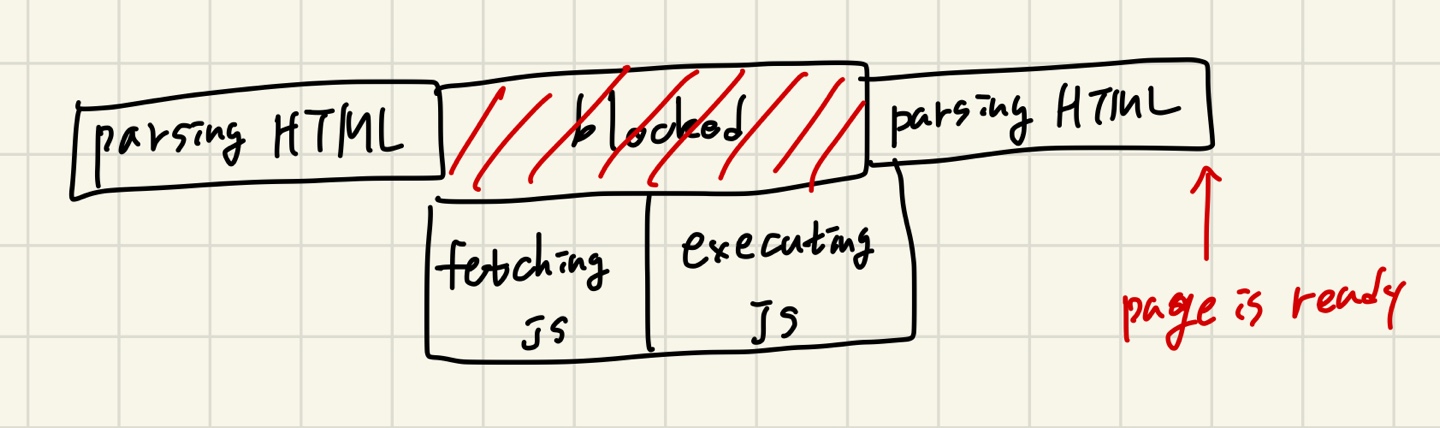 parsing HTML
blocked
parsing HTML
fetching
JS
executing
JS
page is ready